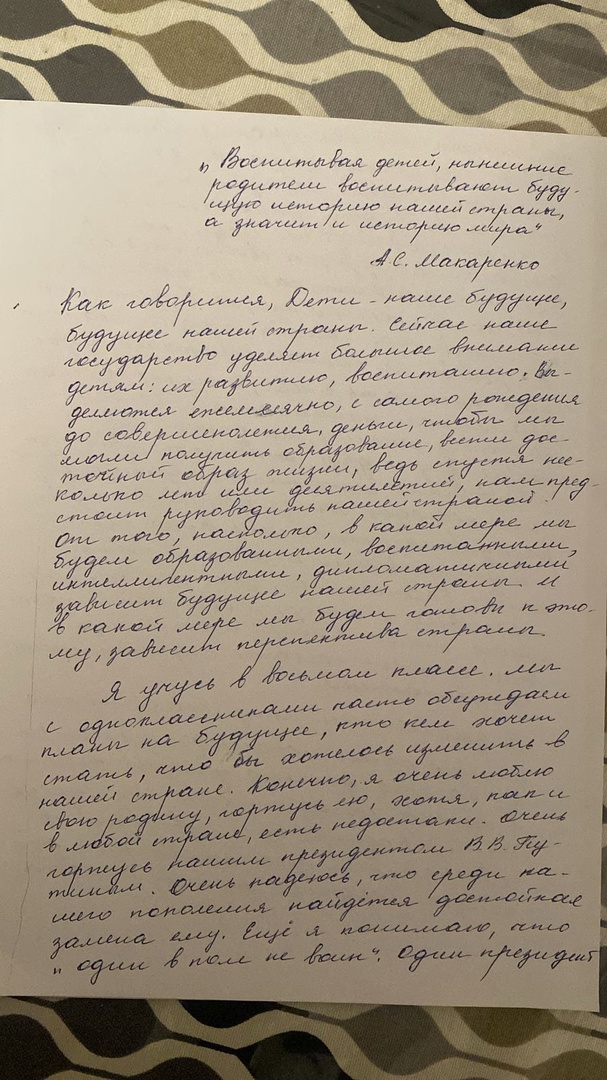 „Воспитывая детей, нынешние
родители воспитывают буду-
щую историю нашей страны,
а значит и историю мира“
А.С. Макаренко
Как говорится, Дети - наше будущее,
будущее нашей страны. Сейчас наше
государство уделяет большое внимание
детям: их развитию, воспитанию. Вы-
деляются ежемесячно, с самого рождения
до совершенолетия, деньги, чтобы мы
могли получить образование, вести дос-
точный образ жизни, ведь спустя нес-
колько лет или десятилетий, нам пред-
стоит руководить нашей страной.
От того, насколько, в какой мере мы
будем образованными, воспитанными,
интеллигентными, дипломатичными
зависит будущее нашей страны. И
в какой мере мы будем готовы к это-
му, зависит перспектива страны.
Я учусь в восьмом классе. Мы
с одноклассниками часто обсуждаем
планы на будущее, кто кем хочет
стать, что бы хотелось изменить в
нашей стране. Конечно, я очень люблю
свою родину, горжусь ею, хотя, как и
в любой стране, есть недостаки. Очень
горжусь нашим президентом В.В. Пу-
тиным. Очень надеюсь, что среди на-
шего поколения найдётся достойная
замена ему. Ещё я понимаю, что
„один в поле не воин“. Один президент